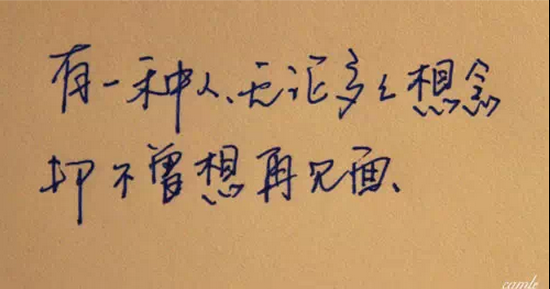 有一种人、无论多么想念
却不曾想再见面、
camle